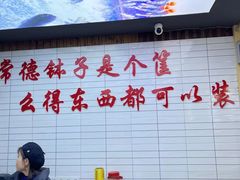 常德钵子是个筐
么得东西都可以装